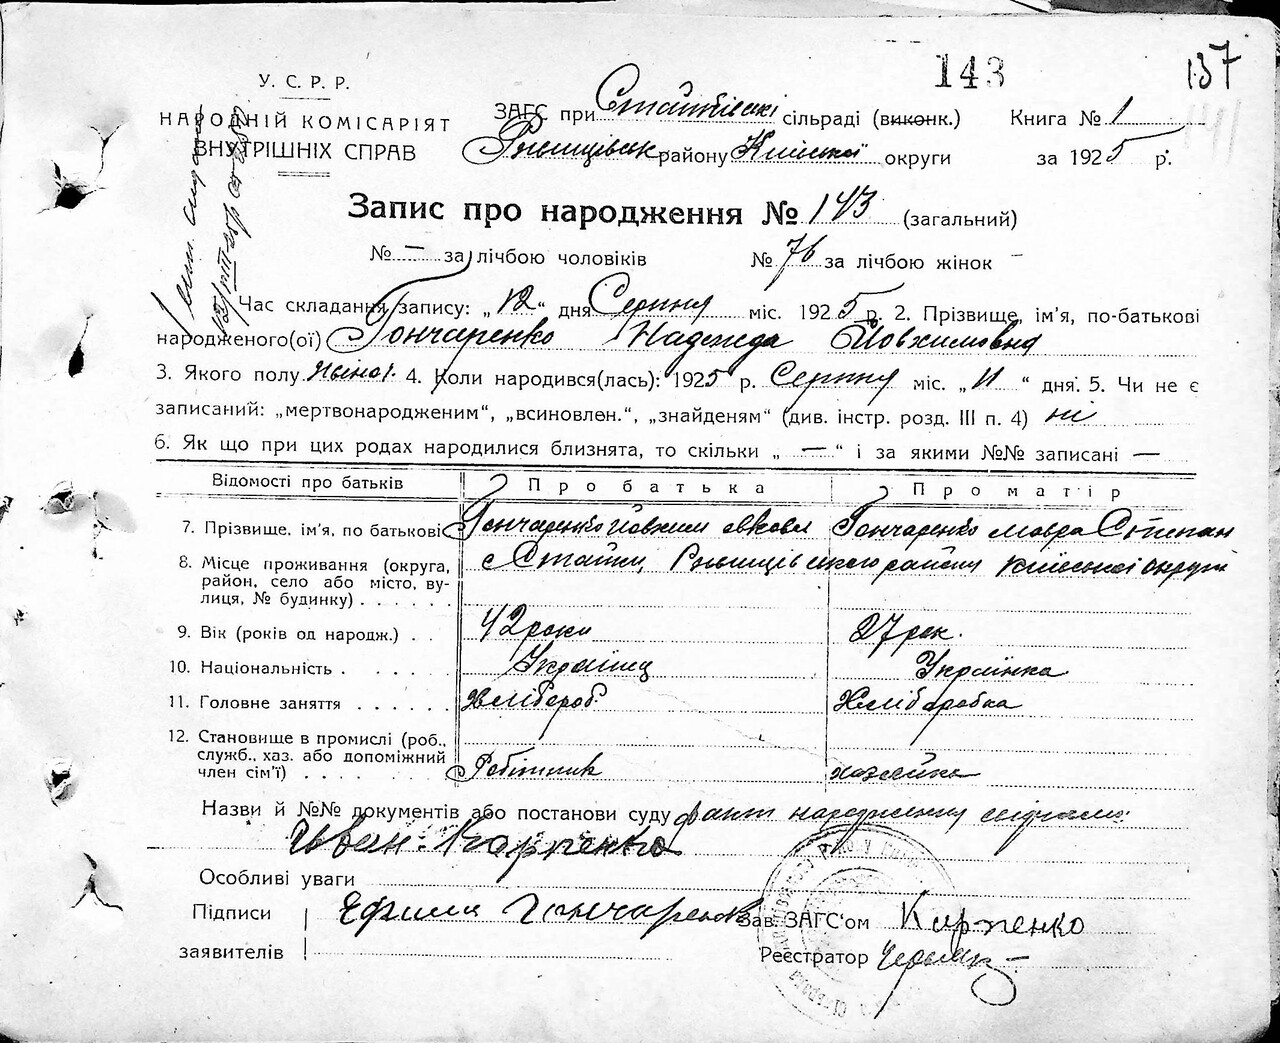 143 137
У. С. Р. Р.
НАРОДНІЙ КОМІСАРІЯТ
ВНУТРІШНІХ СПРАВ
ЗАГС при Стайківські сільраді (виконк.) Книга № 1
Ржищівськ району Київської округи за 1925 р.
Запис про народження № 143 (загальний)
№ — за лічбою чоловіків № 76 за лічбою жінок
Час складання запису: „12“ дня Серпня міс. 1925 р. 2. Прізвище, ім'я, по-батькові
народженого(ої) Гончаренко Надежда Йовхимовна
3. Якого полу жіноч. 4. Коли народився(лась): 1925 р. Серпня міс. „11“ дня. 5. Чи не є
записаний: „мертвонародженим“, „всиновлен.“, „знайденям“ (див. інстр. розд. III п. 4) ні
6. Як що при цих родах народилися близнята, то скільки „ — “ і за якими №№ записані —
Відомості про батьків Про батька Про матір
7. Прізвище, ім'я, по батькові Гончаренко Йовхим Гончаренко Мавра Степан
8. Місце проживання (округа, район, село або місто, вулиця, № будинку) с Стайки Ржищівського району Київської округи
9. Вік (років од народж.) 42 роки 27 рок.
10. Національність Українец Українка
11. Головне заняття Хлібороб Хліборобка
12. Становище в промислі (роб., служб., хаз. або допоміжний член сім'ї) Робітник хазяйка
Назви й №№ документів або постанови суду факт народження
Иван Карпенко
Особливі уваги
Підписи Ефим Гончаренко Зав. ЗАГС'ом Карпенко
заявителів Реєстратор